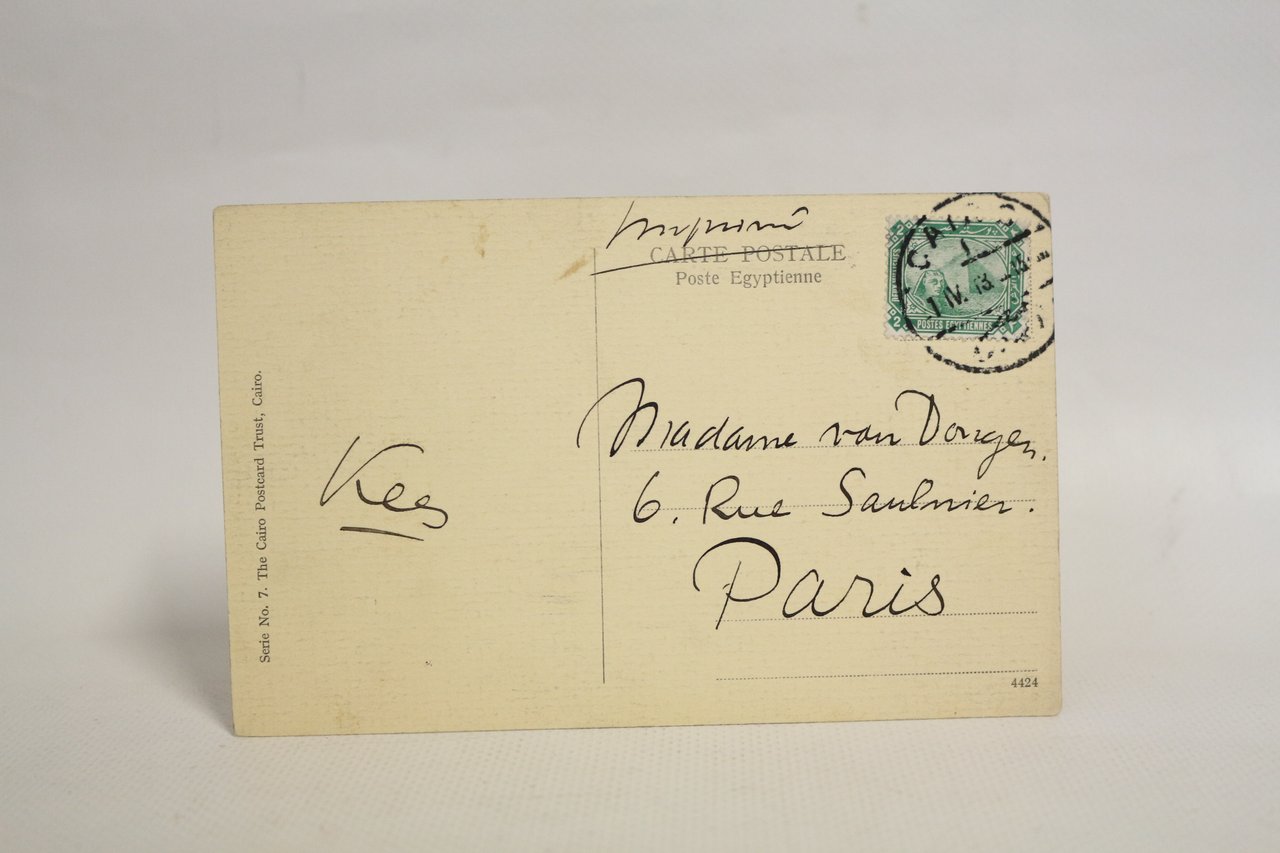 Imprimé
CARTE POSTALE
Poste Egyptienne
CAIRO
1 IV. 13
2
2
POSTES EGYPTIENNES
Madame van Dongen.
6. Rue Saulnier.
Paris
Kees
Serie No. 7. The Cairo Postcard Trust, Cairo.
4424